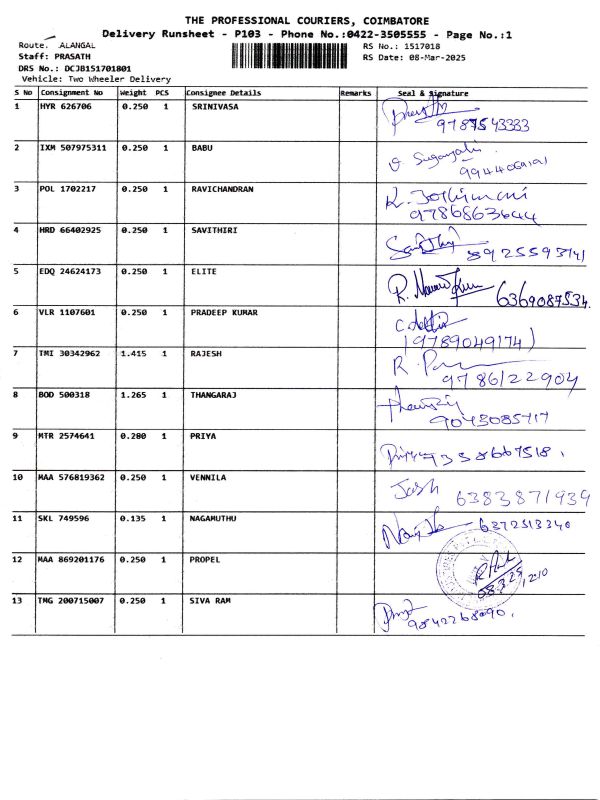 THE PROFESSIONAL COURIERS, COIMBATORE
Delivery Runsheet - P103 - Phone No.:0422-3505555 - Page No.:1
Route. ALANGAL
RS No.: 1517018
Staff: PRASATH
RS Date: 08-Mar-2025
DRS No.: DCJ8151701801
Vehicle: Two Wheeler Delivery
S No Consignment No Weight PCS Consignee Details Remarks Seal & Signature
1 HYR 626706 0.250 1 SRINIVASA
9787543333
2 IXM 507975311 0.250 1 BABU
3 POL 1702217 0.250 1 RAVICHANDRAN
K. Jothimani
9786863644
4 HRD 66402925 0.250 1 SAVITHIRI
8925593741
5 EDQ 24624173 0.250 1 ELITE
6369087534.
6 VLR 1107601 0.250 1 PRADEEP KUMAR
(9789049174)
7 TMI 30342962 1.415 1 RAJESH
9786122904
8 BOD 500318 1.265 1 THANGARAJ
9043085717
9 MTR 2574641 0.280 1 PRIYA
10 MAA 576819362 0.250 1 VENNILA
Jash 6383871939
11 SKL 749596 0.135 1 NAGAMUTHU
6372513340
12 MAA 869201176 0.250 1 PROPEL
13 TMG 200715007 0.250 1 SIVA RAM